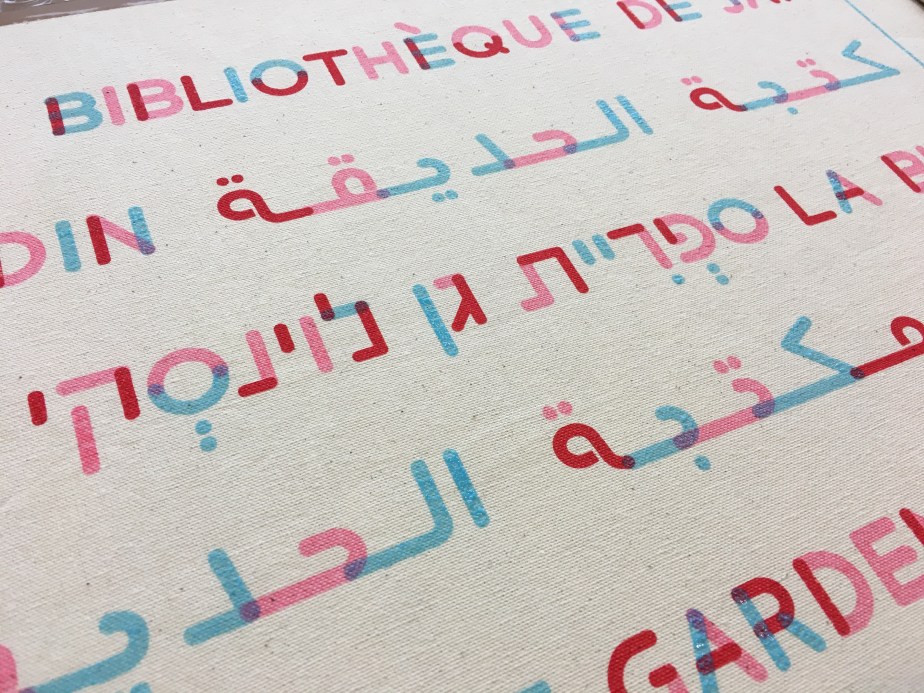 BIBLIOTHÈQUE DE JA
DIN كتبة الحديقة
ספריית גן לוינסקי LA B
مكتبة الحديـ
GARDEN